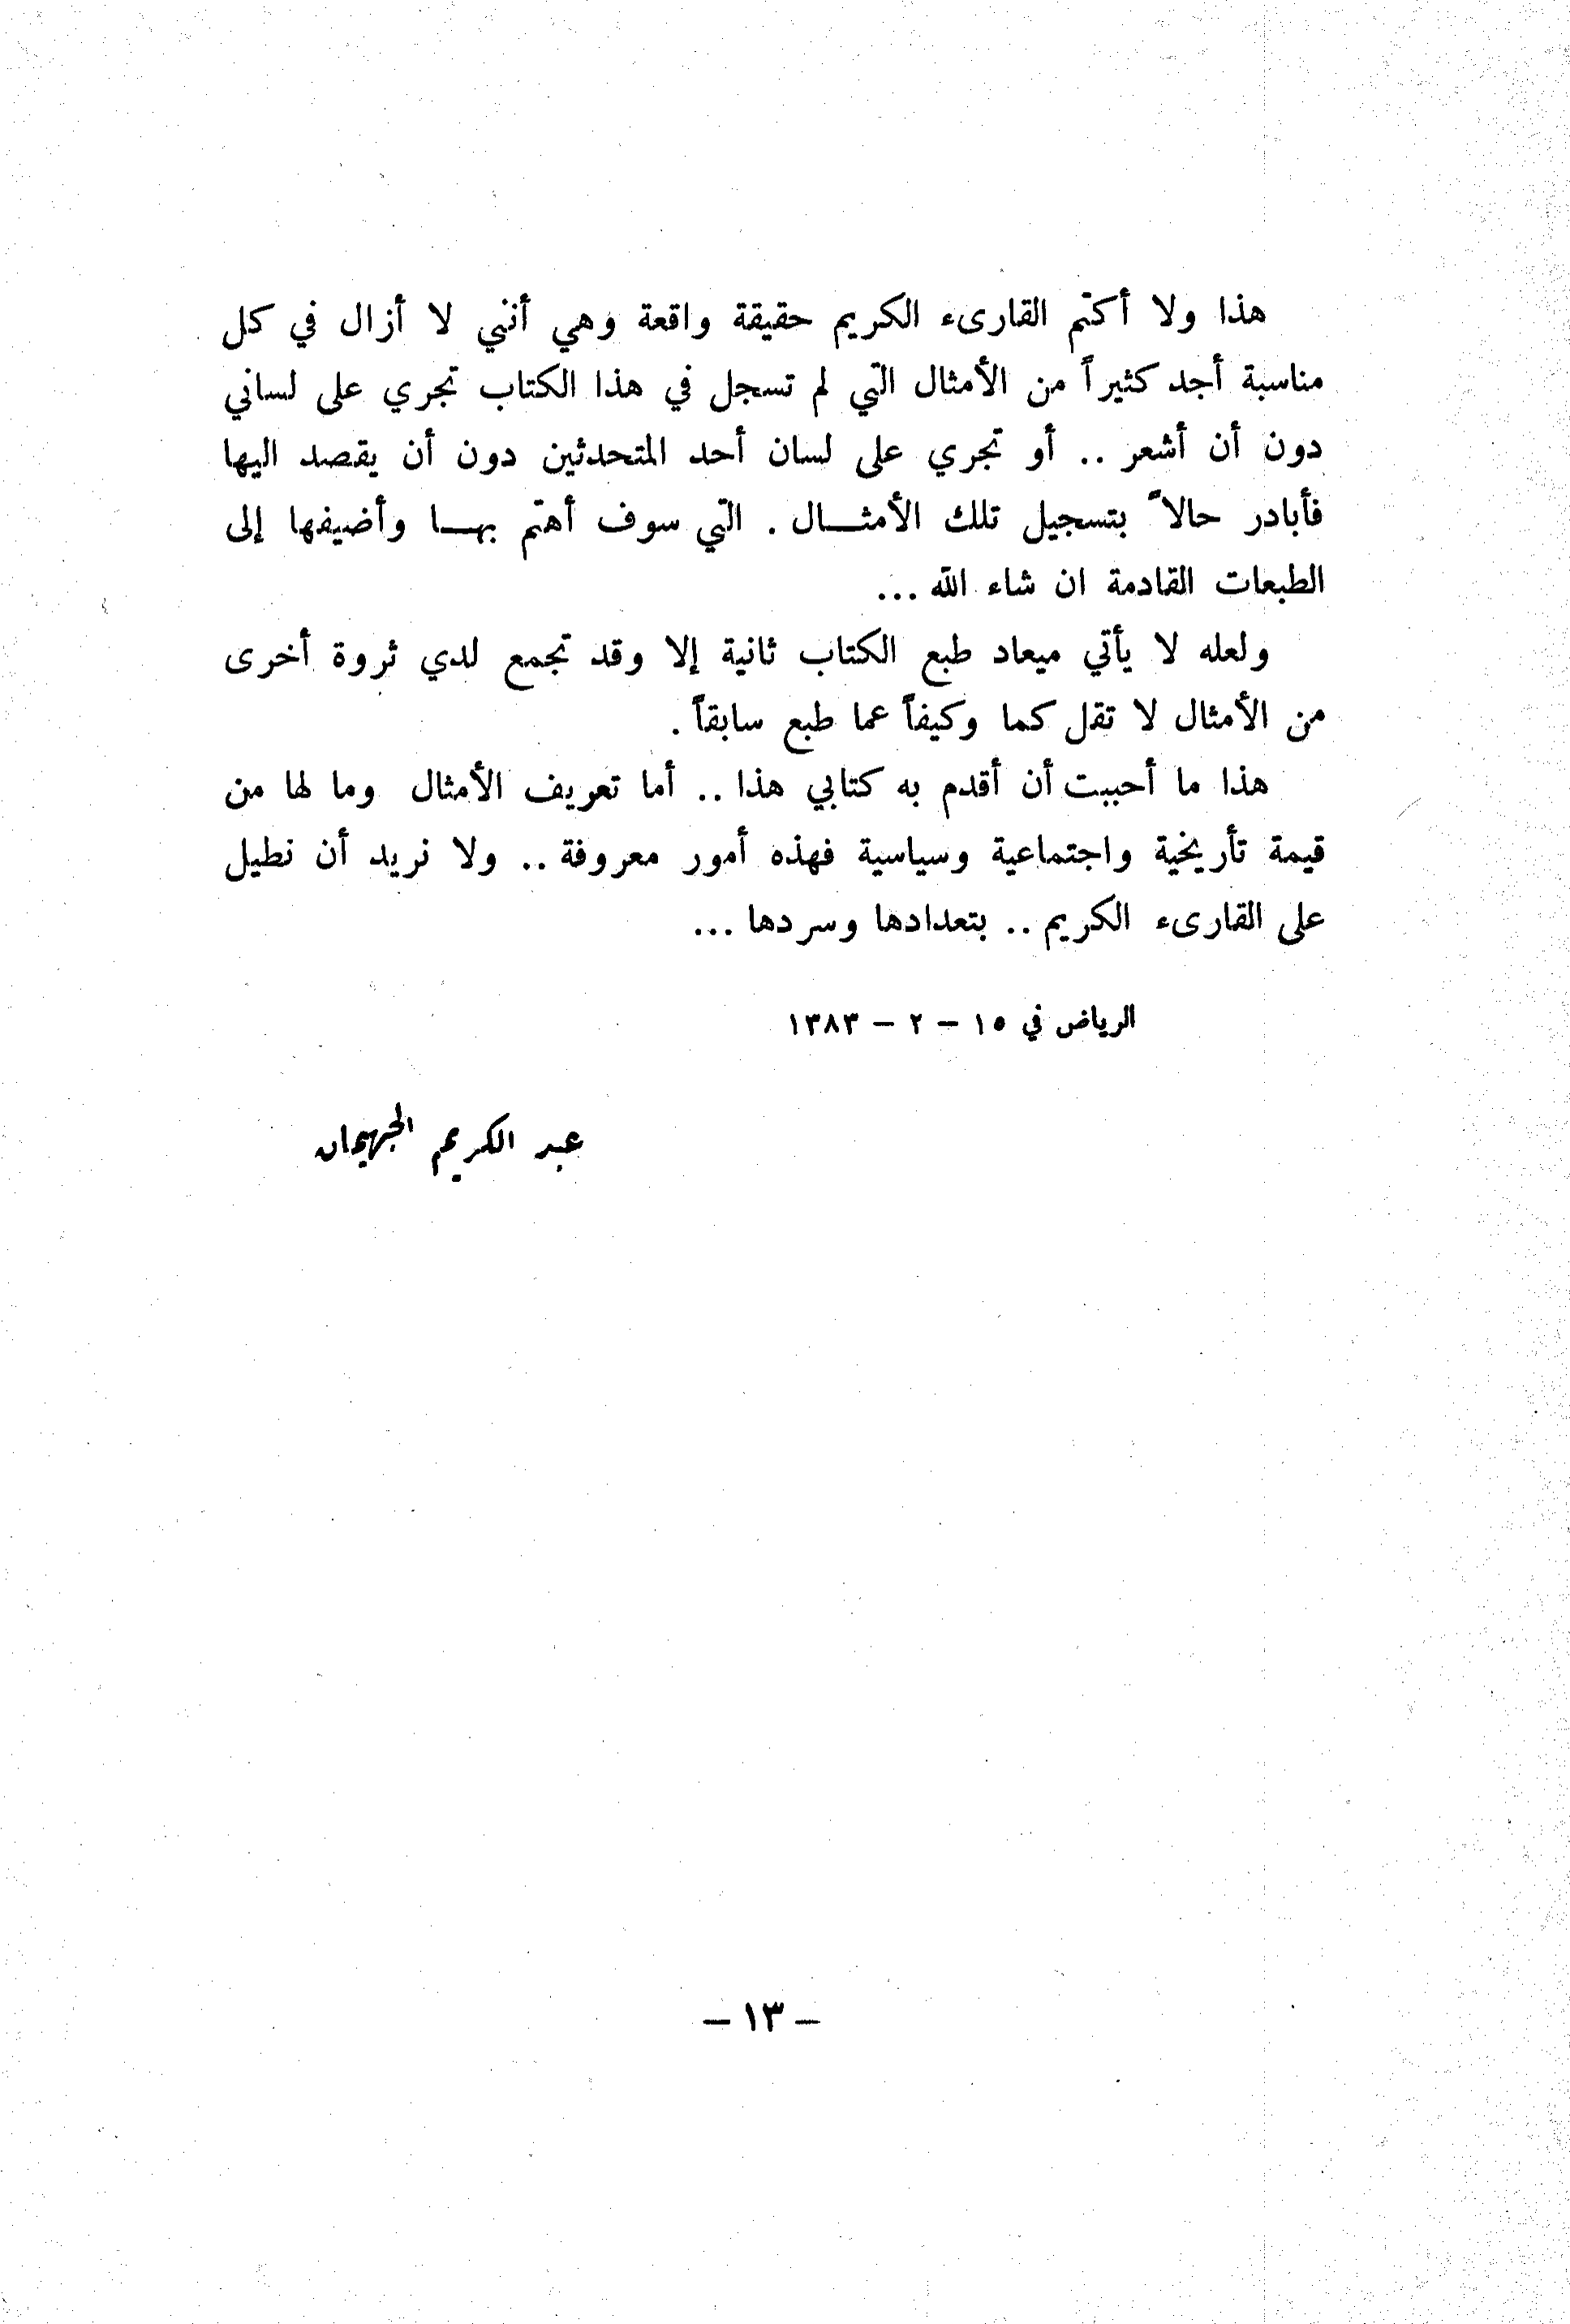 هذا ولا أكتم القارىء الكريم حقيقة واقعة وهي أنني لا أزال في كل
مناسبة أجد كثيراً من الأمثال التي لم تسجل في هذا الكتاب تجري على لساني
دون أن أشعر .. أو تجري على لسان أحد المتحدثين دون أن يقصد اليها
فأبادر حالاً بتسجيل تلك الأمثـــال . التي سوف أهتم بهـــا وأضيفها إلى
الطبعات القادمة ان شاء الله ...
ولعله لا يأتي ميعاد طبع الكتاب ثانية إلا وقد تجمع لدي ثروة أخرى
من الأمثال لا تقل كما وكيفاً عما طبع سابقاً .
هذا ما أحببت أن أقدم به كتابي هذا .. أما تعريف الأمثال وما لها من
قيمة تأريخية واجتماعية وسياسية فهذه أمور معروفة .. ولا نريد أن نطيل
على القارىء الكريم .. بتعدادها وسردها ...
الرياض في ١٥ – ٢ – ١٣٨٣
عبد الكريم الجهيمان
– ١٣ –